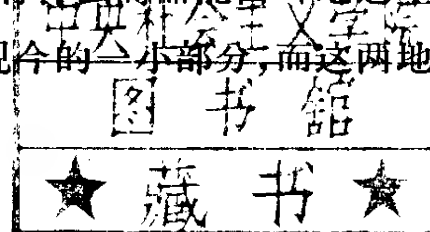 中央社会主义学院
今的一小部分,而这两地
图书馆
★藏书★